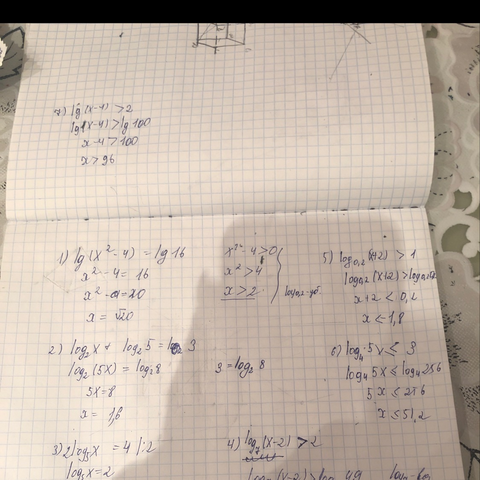 7) lg(x-4) > 2
lg(x-4) > lg 100
x-4 > 100
x > 96
1) lg(x²-4) = lg 16
x²-4 = 16
x² = 20
x = √20
x²-4 > 0
x² > 4
x > 2
5) log₀,₂(x+2) > 1
log₀,₂(x+2) > log₀,₂
x+2 < 0,2
x < -1,8
2) log₂x + log₂5 = 3
log₂(5x) = log₂8
5x = 8
x = 1,6
3 = log₂8
6) log₄ 5x ≤ 3
log₄ 5x ≤ log₄ 256
5x ≤ 256
x ≤ 51,2
3) 2log₅x = 4 |:2
log₅x = 2
4) log₇(x-2) > 2
log₇(x-2) > log 49